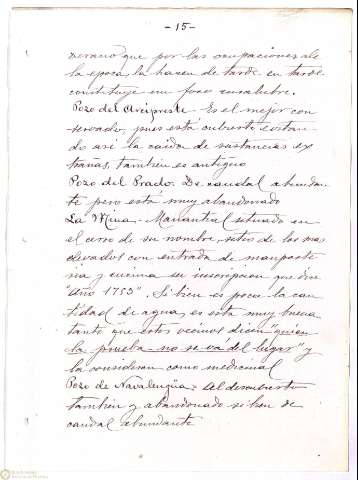 -15-
verano que por las ocupaciones de
la época, la hacen de tarde en tarde
constituye un foco insalubre.
Pozo del Arcipreste - Es el mejor con
servado, pues está cubierto evitan-
do así la caida de sustancias ex
trañas, tambien es antiguo
Pozo del Prado. De caudal abundan
te pero está muy abandonado
La Mina - Manantial situado en
el cerro de su nombre, sitio de los mas
elevados con entrada de mamposte
ria y encima su inscripcion que dice
"Año 1753". Si bien es poca la can
tidad de agua, es esta muy buena
tanto que estos vecinos dicen "quien
la prueba no se va del lugar" y
la consideran como medicinal
Pozo de Navaluenga: Al descubierto
tambien y abandonado si bien de
caudal abundante